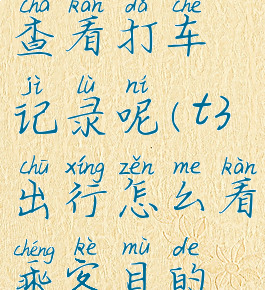 chá kàn dǎ chē
查看打车
jì lù ní
记录呢(t3
chū xíng zěn me kàn
出行怎么看
chéng kè mù de
乘客目的